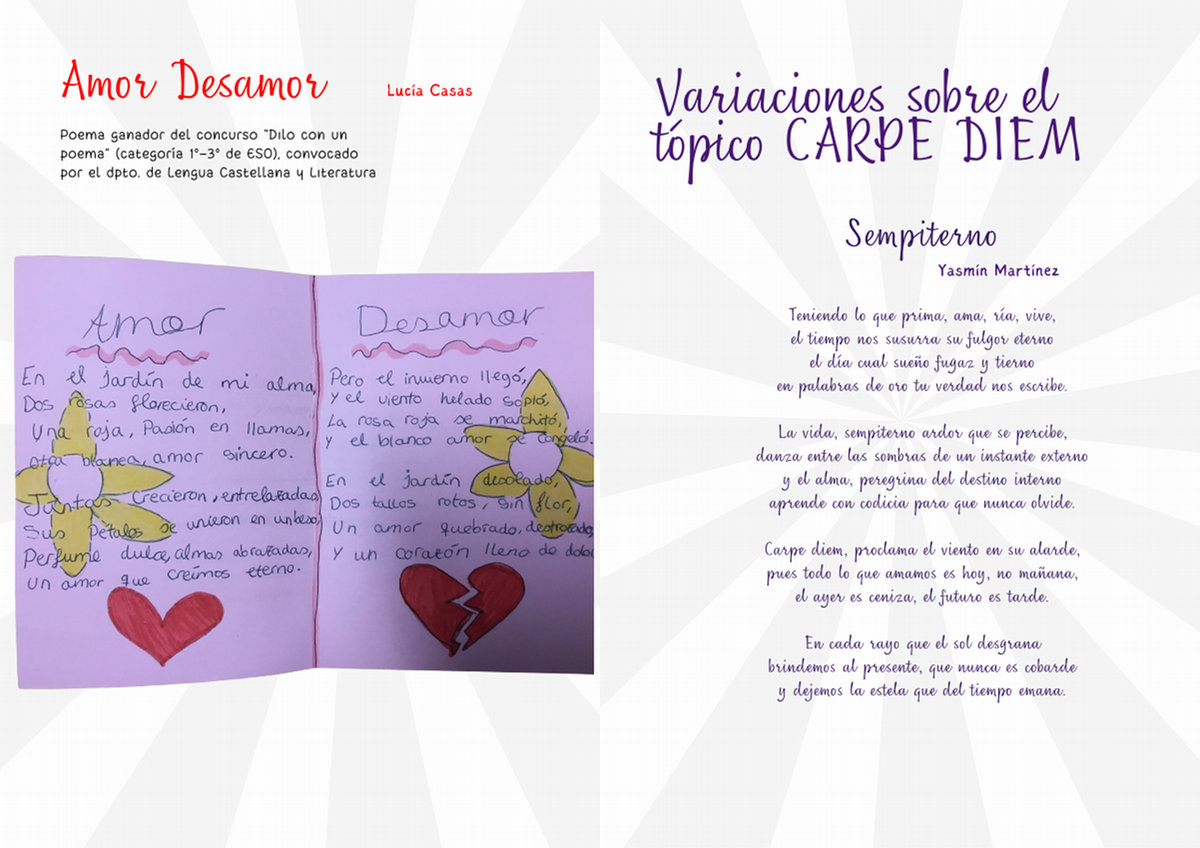 Amor Desamor
Lucía Casas
Poema ganador del concurso "Dilo con un
poema" (categoría 1º-3º de ESO), convocado
por el dpto. de Lengua Castellana y Literatura
Amor
En el jardín de mi alma,
Dos rosas florecieron,
Una roja, Pasión en llamas,
otra blanca, amor sincero.
Juntas crecieron, entrelazadas
Sus Pétalos se unieron en un beso,
Perfume dulce, almas abrazadas,
Un amor que creímos eterno.
Desamor
Pero el invierno llegó,
Y el viento helado sopló,
La rosa roja se marchitó,
Y el blanco amor se congeló.
En el jardín desolado,
Dos tallos rotos, sin flor,
Un amor quebrado, destrozado,
Y un corazón lleno de dolor
Variaciones sobre el
tópico CARPE DIEM
Sempiterno
Yasmín Martínez
Teniendo lo que prima, ama, ría, vive,
el tiempo nos susurra su fulgor eterno
el día cual sueño fugaz y tierno
en palabras de oro tu verdad nos escribe.
La vida, sempiterno ardor que se percibe,
danza entre las sombras de un instante externo
y el alma, peregrina del destino interno
aprende con codicia para que nunca olvide.
Carpe diem, proclama el viento en su alarde,
pues todo lo que amamos es hoy, no mañana,
el ayer es ceniza, el futuro es tarde.
En cada rayo que el sol desgrana
brindemos al presente, que nunca es cobarde
y dejemos la estela que del tiempo emana.